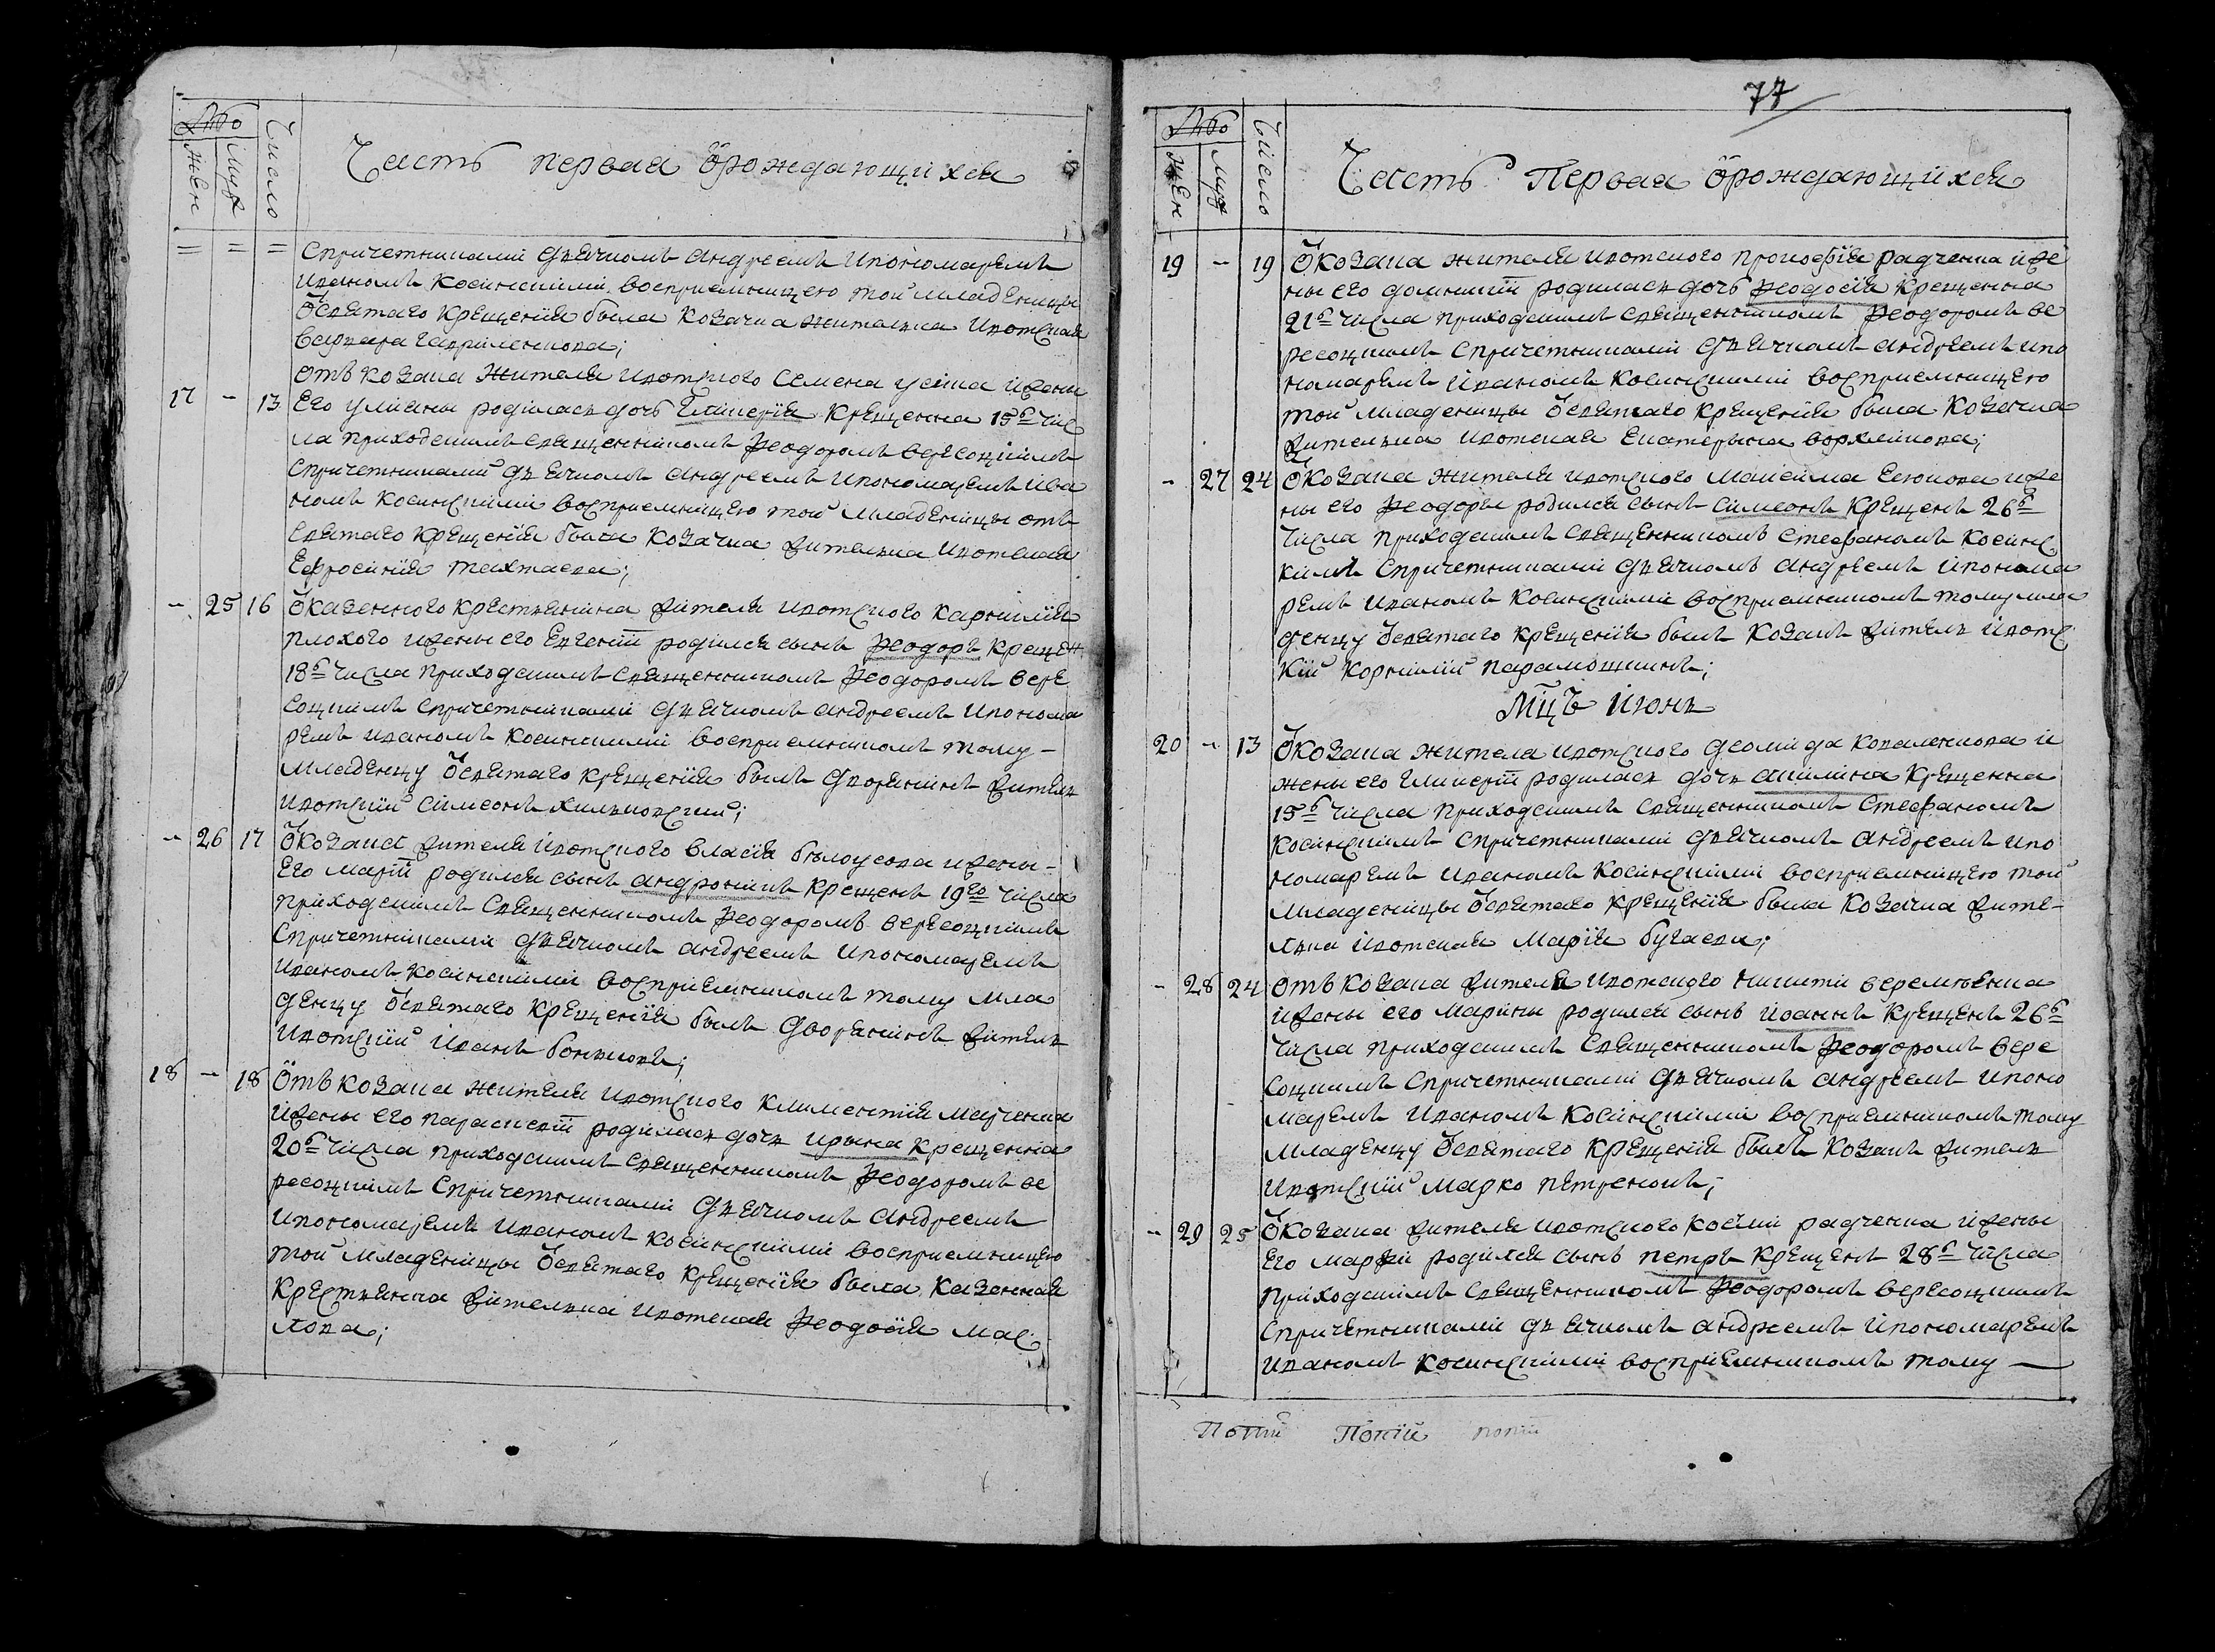 №
жен
муж
Число
Часть первая о рождающихся
= = = Спричетниками дьячкомъ Андреемъ ипономаремъ
Иваномъ Косинскими восприемницею той младеницы
от святаго крещенія была козачка жителька ивотская
Варвара Гавриленкова;
отъ козака жителя ивотского Семена Усика ижены
17 - 13 его улияны родилась дочь Гликерія крещенна 15г чис
ла приходскимъ священникомъ Ѳеодоромъ Вересоцкимъ
Спричетниками дьячкомъ Андреемъ ипономаремъ Ива
номъ Косинскими восприемницею той младеницы отъ
святаго крещенія была козачка жителька ивотская
Ефросинія Тахтаева;
- 25 16 От казенного крестьянина жителя ивотского Карнилія
Плохого ижены его Евгеніи родился сынъ Ѳеодоръ крещен
18г числа приходскимъ священникомъ Ѳеодоромъ Вере
соцкимъ спричетниками дьячкомъ Андреемъ ипонома
ремъ Иваномъ Косинскими восприемникомъ тому -
младенцу от святаго крещенія былъ дворянинъ житель
ивотскій Симеонъ Хильковскій;
- 26 17 От козака жителя ивотского Власія Белоусова ижены -
его Маріи родился сынъ Андроникъ крещенъ 19го числа
приходскимъ священникомъ Ѳеодоромъ Вересоцкимъ
Спричетниками дьячкомъ Андреемъ ипономаремъ
Иваномъ Косинскими восприемникомъ тому мла
денцу от святаго крещенія былъ дворянинъ житель
ивотскій Иванъ
18 - 18 Отъ козака жителя ивотского Климентія Марченка
ижены его Параскевіи родилась дочь Ирына крещенна
20г числа приходскимъ священникомъ Ѳеодоромъ Ве
ресоцкимъ Спричетниками дьячкомъ Андреемъ
ипономаремъ Иваномъ Косинскими восприемницею
той младеницы от святаго крещенія была казенная
крестьянка жителька ивотская Ѳеодосія Мас
лова;
77
№
жен
муж
Число
Часть Первая о рождающихся
19 - 19 От козака жителя ивотского Прокофія Радченка иже
ны его Домникіи родилась дочь Ѳеодосія крещенна
21г числа приходскимъ священникомъ Ѳеодоромъ Ве
ресоцкимъ спричетниками дьячкомъ Андреемъ ипо
номаремъ Иваномъ Косинскими восприемницею
той младеницы от святаго крещенія была козачка
жителька ивотская Екатерына
- 27 24 От козака жителя ивотского Максима Есюкова иже
ны его Ѳеодоры родился сынъ Симеонъ крещенъ 26г
числа приходскимъ священникомъ Стефаномъ Косинс
кимъ Спричетниками дьячкомъ Андреемъ ипонома
ремъ Иваномъ Косинскими восприемникомъ тому мла
денцу от святаго крещенія былъ козакъ житель ивотс
кій Корнилій Парамошкинъ;
Мцъ Июнь
20 - 13 От козака жителя ивотского Деомида Коваленкова и
жены его Гликеріи родилась дочь Акилина крещенна
15г числа приходскимъ священникомъ Стефаномъ
Косинскимъ Спричетниками дьячкомъ Андреемъ ипо
номаремъ Иваномъ Косинскими восприемницею той
младеницы от святаго крещенія была козачка жите-
лька ивотская Марія Бугаева;
- 28 24 Отъ козака жителя ивотского Никиты Веремѣенка
ижены его Марины родился сынъ Иоаннъ крещенъ 26г
числа приходскимъ священникомъ Ѳеодоромъ Вере
соцкимъ Спричетниками дьячкомъ Андреемъ ипоно
маремъ Иваномъ Косинскими восприемникомъ тому
младенцу от святаго крещенія былъ козакъ житель
ивотскій Марко Петренокъ;
- 29 25 От козака жителя ивотского Косми Радченка ижены
его Марѳи родился сынъ Петръ крещенъ 28г числа
приходскимъ священникомъ Ѳеодоромъ Вересоцкимъ
спричетниками дьячкомъ Андреемъ ипономаремъ
Иваномъ Косинскими восприемникомъ тому —